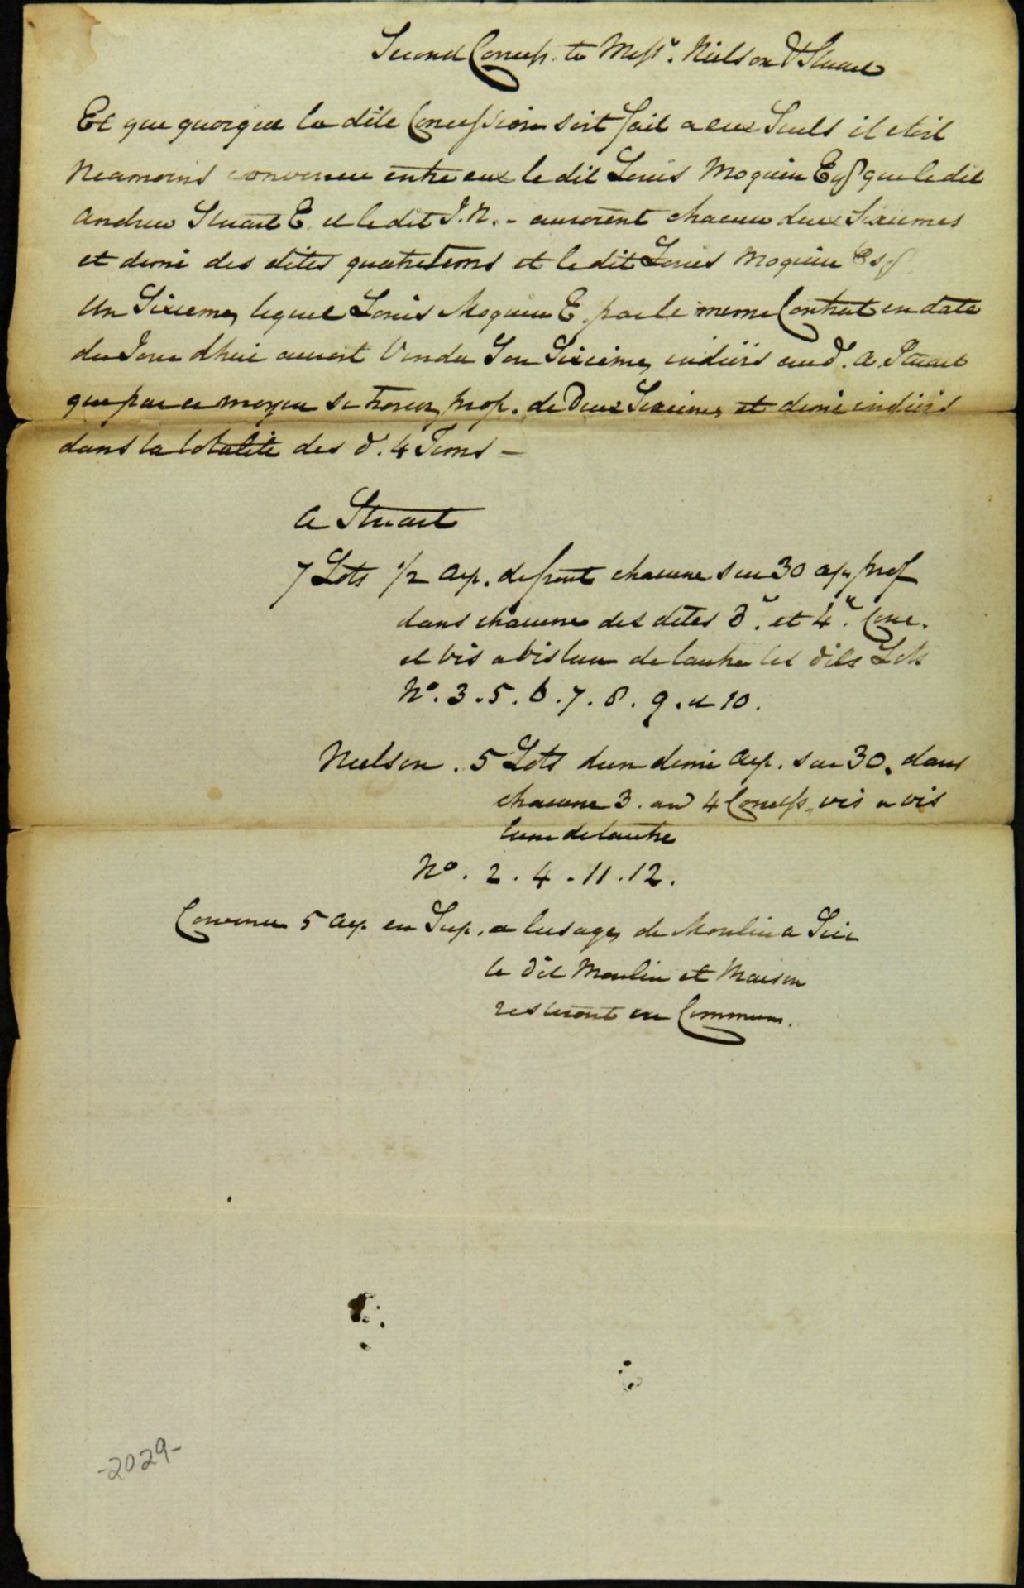 Second Concess. to Messrs. Nielson & Stuart
Et que quoique la dite Concession soit fait a eux Seuls il etoit
Neamoins convenue entre eux le dit Louis Moquin Esqr que le dit
Andrew Stuart E. et le dit J. N. - auroient chacun deux Sixiemes
et demi des dites quatre terres et le dit Louis Moquin Esqr
Un Sixieme, lequel Louis Moquin E. par le meme Contrat en date
du Jour dhui auroit Vendu Son Sixieme, indivis aud. A. Stuart
que par ce moyen se trouve prop. de Deux Sixiemes et demi indivis
dans la totalité des d. 4 Terres -
A Stuart
7 Lots 1/2 arp. de front chacune sur 30 arp prof
dans chacune des dites 3e. et 4e. Conc.
et vis a vis lun de lautre les dits Lots
No. 3. 5. 6. 7. 8. 9. et 10.
Neilson. 5 Lots dun demi arp. sur 30. dans
chacune 3. and 4 Concess. vis a vis
lune de lautre
No. 2. 4. 11. 12.
Convenu 5 arp en Sup. a lusage, de Moulin a Scie
le dit Moulin et Maison
resteront en Commun.
-2029-